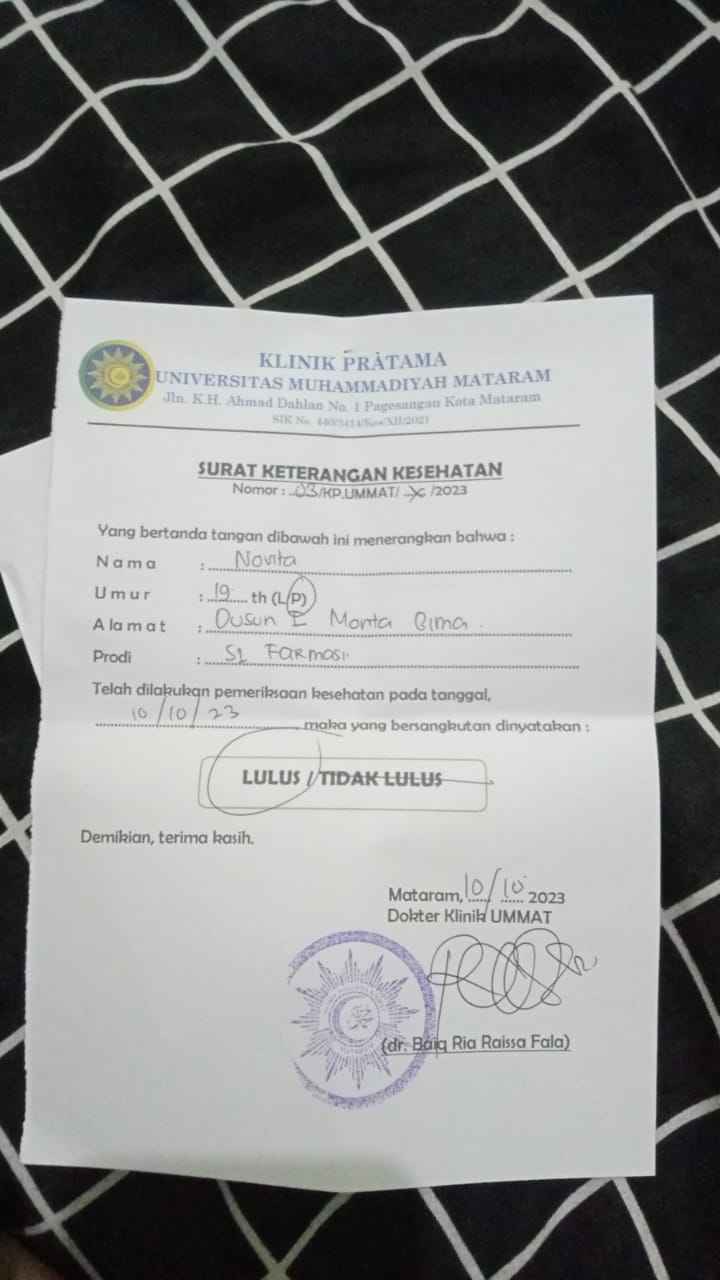 KLINIK PRATAMA
UNIVERSITAS MUHAMMADIYAH MATARAM
Jln. K.H. Ahmad Dahlan No. 1 Pagesangan Kota Mataram
SIK No. 440/3414/Kes/XII/2021
SURAT KETERANGAN KESEHATAN
Nomor : ..03/KP.UMMAT/ X /2023
Yang bertanda tangan dibawah ini menerangkan bahwa :
Nama : Novita
Umur : 19 th (L/P)
Alamat : Dusun I Monta Bima.
Prodi : S1 Farmasi.
Telah dilakukan pemeriksaan kesehatan pada tanggal,
10/10/23 maka yang bersangkutan dinyatakan :
LULUS / TIDAK LULUS
Demikian, terima kasih.
Mataram, 10/10 2023
Dokter Klinik UMMAT
(dr. Baiq Ria Raissa Fala)